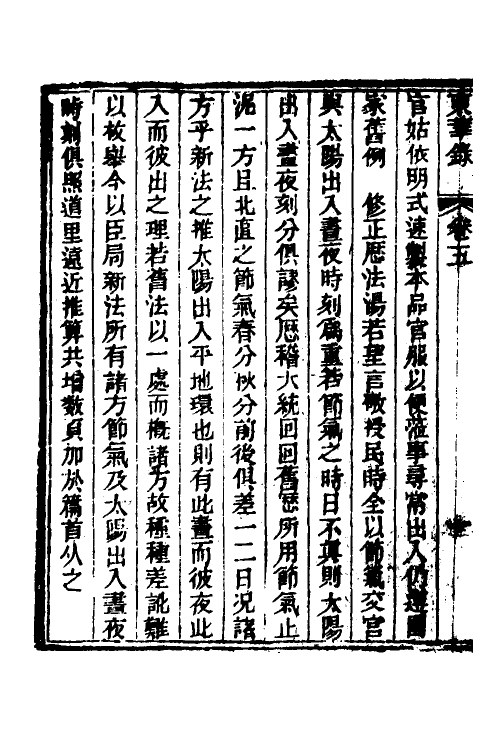 東華錄 卷五
官姑依明式速製本品官服以便蒞事尋常出入仍遵國
家舊例 修正厯法湯若望言敬授民時全以節氣交宮
與太陽出入晝夜時刻爲重若節氣之時日不眞則太陽
出入晝夜刻分俱謬矣厯稽大統回回舊厯所用節氣止
泥一方且北直之節氣春分秋分前後俱差一二日况諸
方乎新法之推太陽出入乎地環也則有此晝而彼夜此
入而彼出之理若舊法以一處而槪諸方故種種差訛難
以枚舉今以臣局新法所有諸方節氣及太陽出入晝夜
時刻俱照道里遠近推算共增數頁加於篇首从之